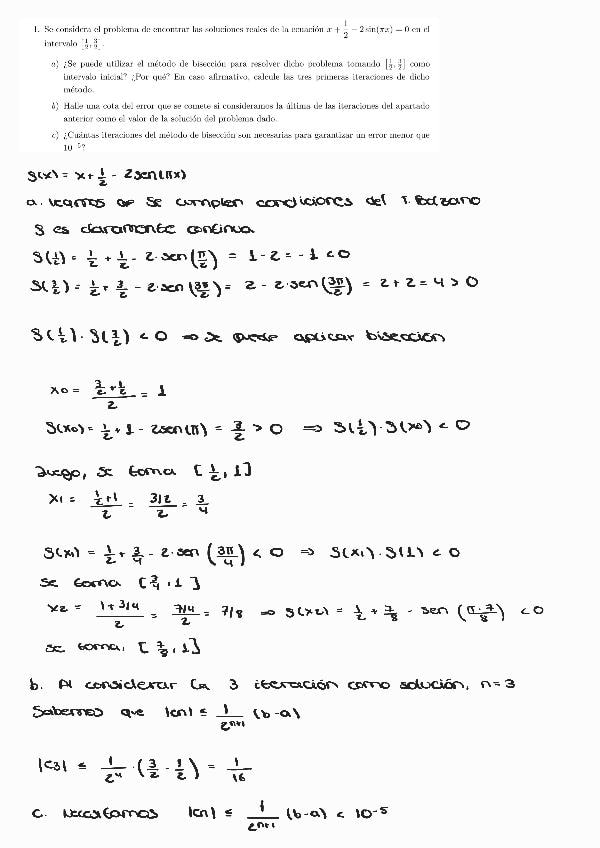 1. Se considera el problema de encontrar las soluciones reales de la ecuación x + 1/2 − 2 sin(πx) = 0 en el
intervalo [1/2, 3/2].
a) ¿Se puede utilizar el método de bisección para resolver dicho problema tomando [1/2, 3/2] como
intervalo inicial? ¿Por qué? En caso afirmativo, calcule las tres primeras iteraciones de dicho
método.
b) Halle una cota del error que se comete si consideramos la última de las iteraciones del apartado
anterior como el valor de la solución del problema dado.
c) ¿Cuántas iteraciones del método de bisección son necesarias para garantizar un error menor que
10⁻⁵?
f(x) = x + 1/2 - 2sen(πx)
a. Veamos qe se cumplen condiciones del T. Bolzano
f es claramente continua
f(1/2) = 1/2 + 1/2 - 2·sen(π/2) = 1 - 2 = -1 < 0
f(3/2) = 1/2 + 3/2 - 2·sen(3π/2) = 2 - 2·sen(3π/2) = 2 + 2 = 4 > 0
f(1/2)·f(3/2) < 0 ⇒ se puede aplicar bisección
x0 = (3/2 + 1/2)/2 = 1
f(x0) = 1/2 + 1 - 2sen(π) = 3/2 > 0 ⇒ f(1/2)·f(x0) < 0
Luego, se toma [1/2, 1]
x1 = (1/2 + 1)/2 = (3/2)/2 = 3/4
f(x1) = 1/2 + 3/4 - 2·sen(3π/4) < 0 ⇒ f(x1)·f(1) < 0
se toma [3/4, 1]
x2 = (1 + 3/4)/2 = (7/4)/2 = 7/8 ⇒ f(x2) = 1/2 + 7/8 - sen(π·7/8) < 0
se toma. [7/8, 1]
b. Al considerar la 3 iteración como solución, n=3
Sabemos que |en| ≤ 1/2ⁿ⁺¹ (b-a)
|e3| ≤ 1/2⁴ · (3/2 - 1/2) = 1/16
c. Necesitamos |en| ≤ 1/2ⁿ⁺¹ (b-a) < 10⁻⁵